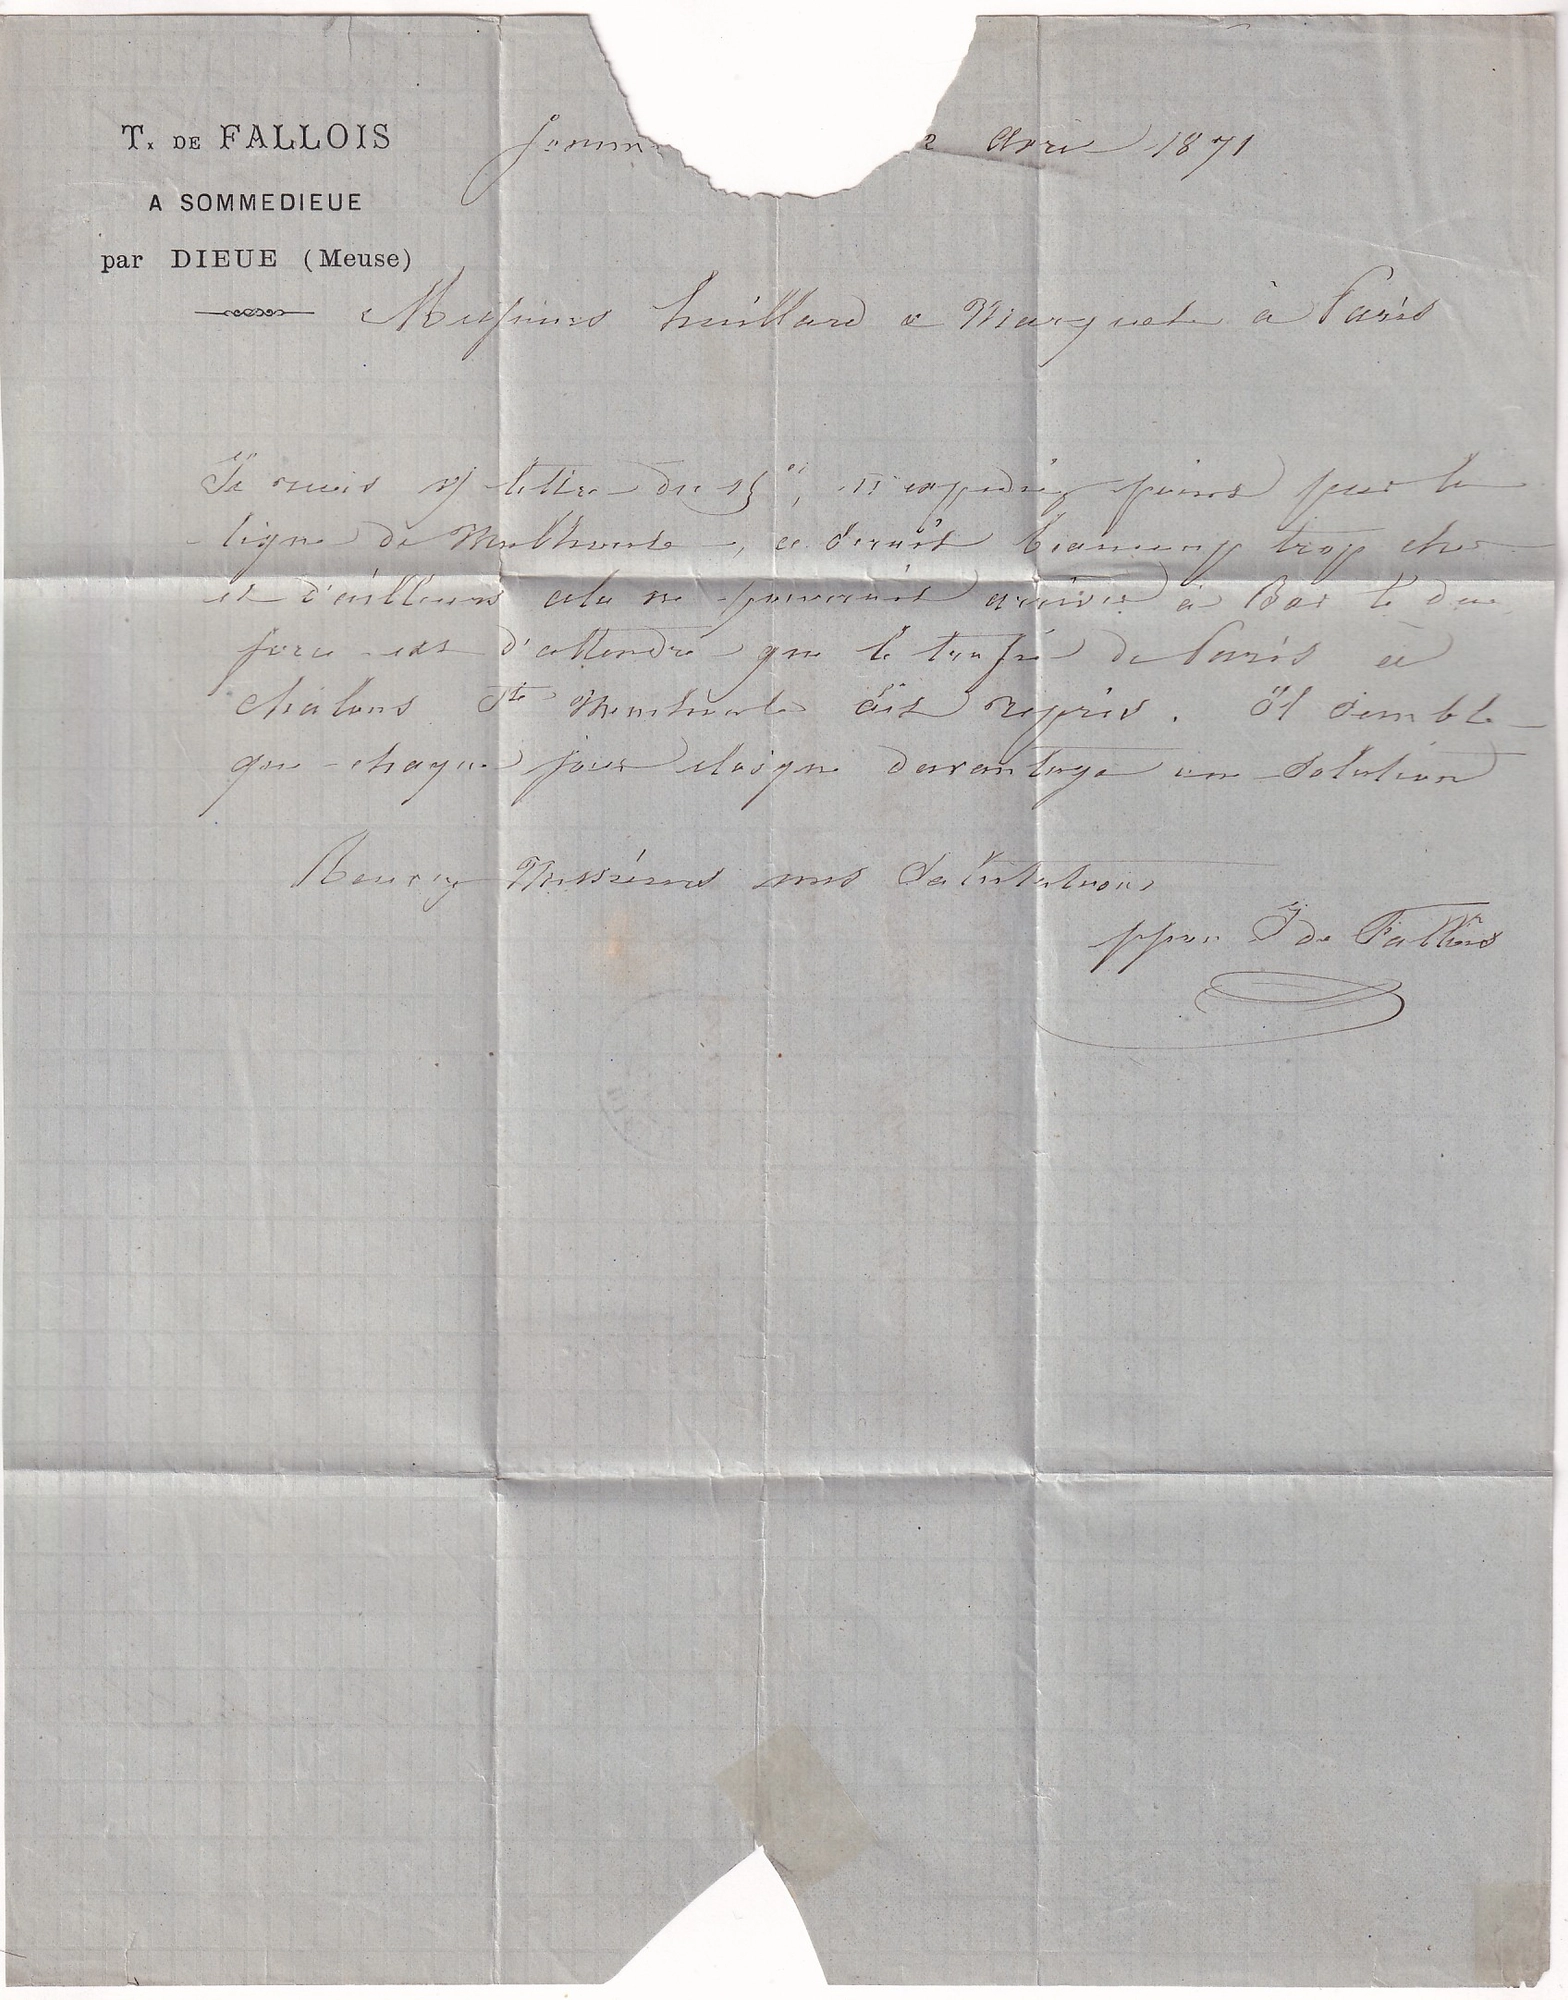 T. DE FALLOIS
A SOMMEDIEUE
par DIEUE (Meuse)
2 Avril 1871
Messieurs huillard & Marquet à Paris
Je reçois v/ lettre du, n'expediez point par la
ligne de Mulhouse, ce serait beaucoup trop cher
et d'ailleurs cela ne pourrait arriver à Bar le duc
force est d'attendre que le trafic de Paris à
Chalons Ste Menehould ait repris. Il semble
que chaque jour eloigne davantage une solution
Recevez Messieurs mes Salutations
ppon T de Fallois